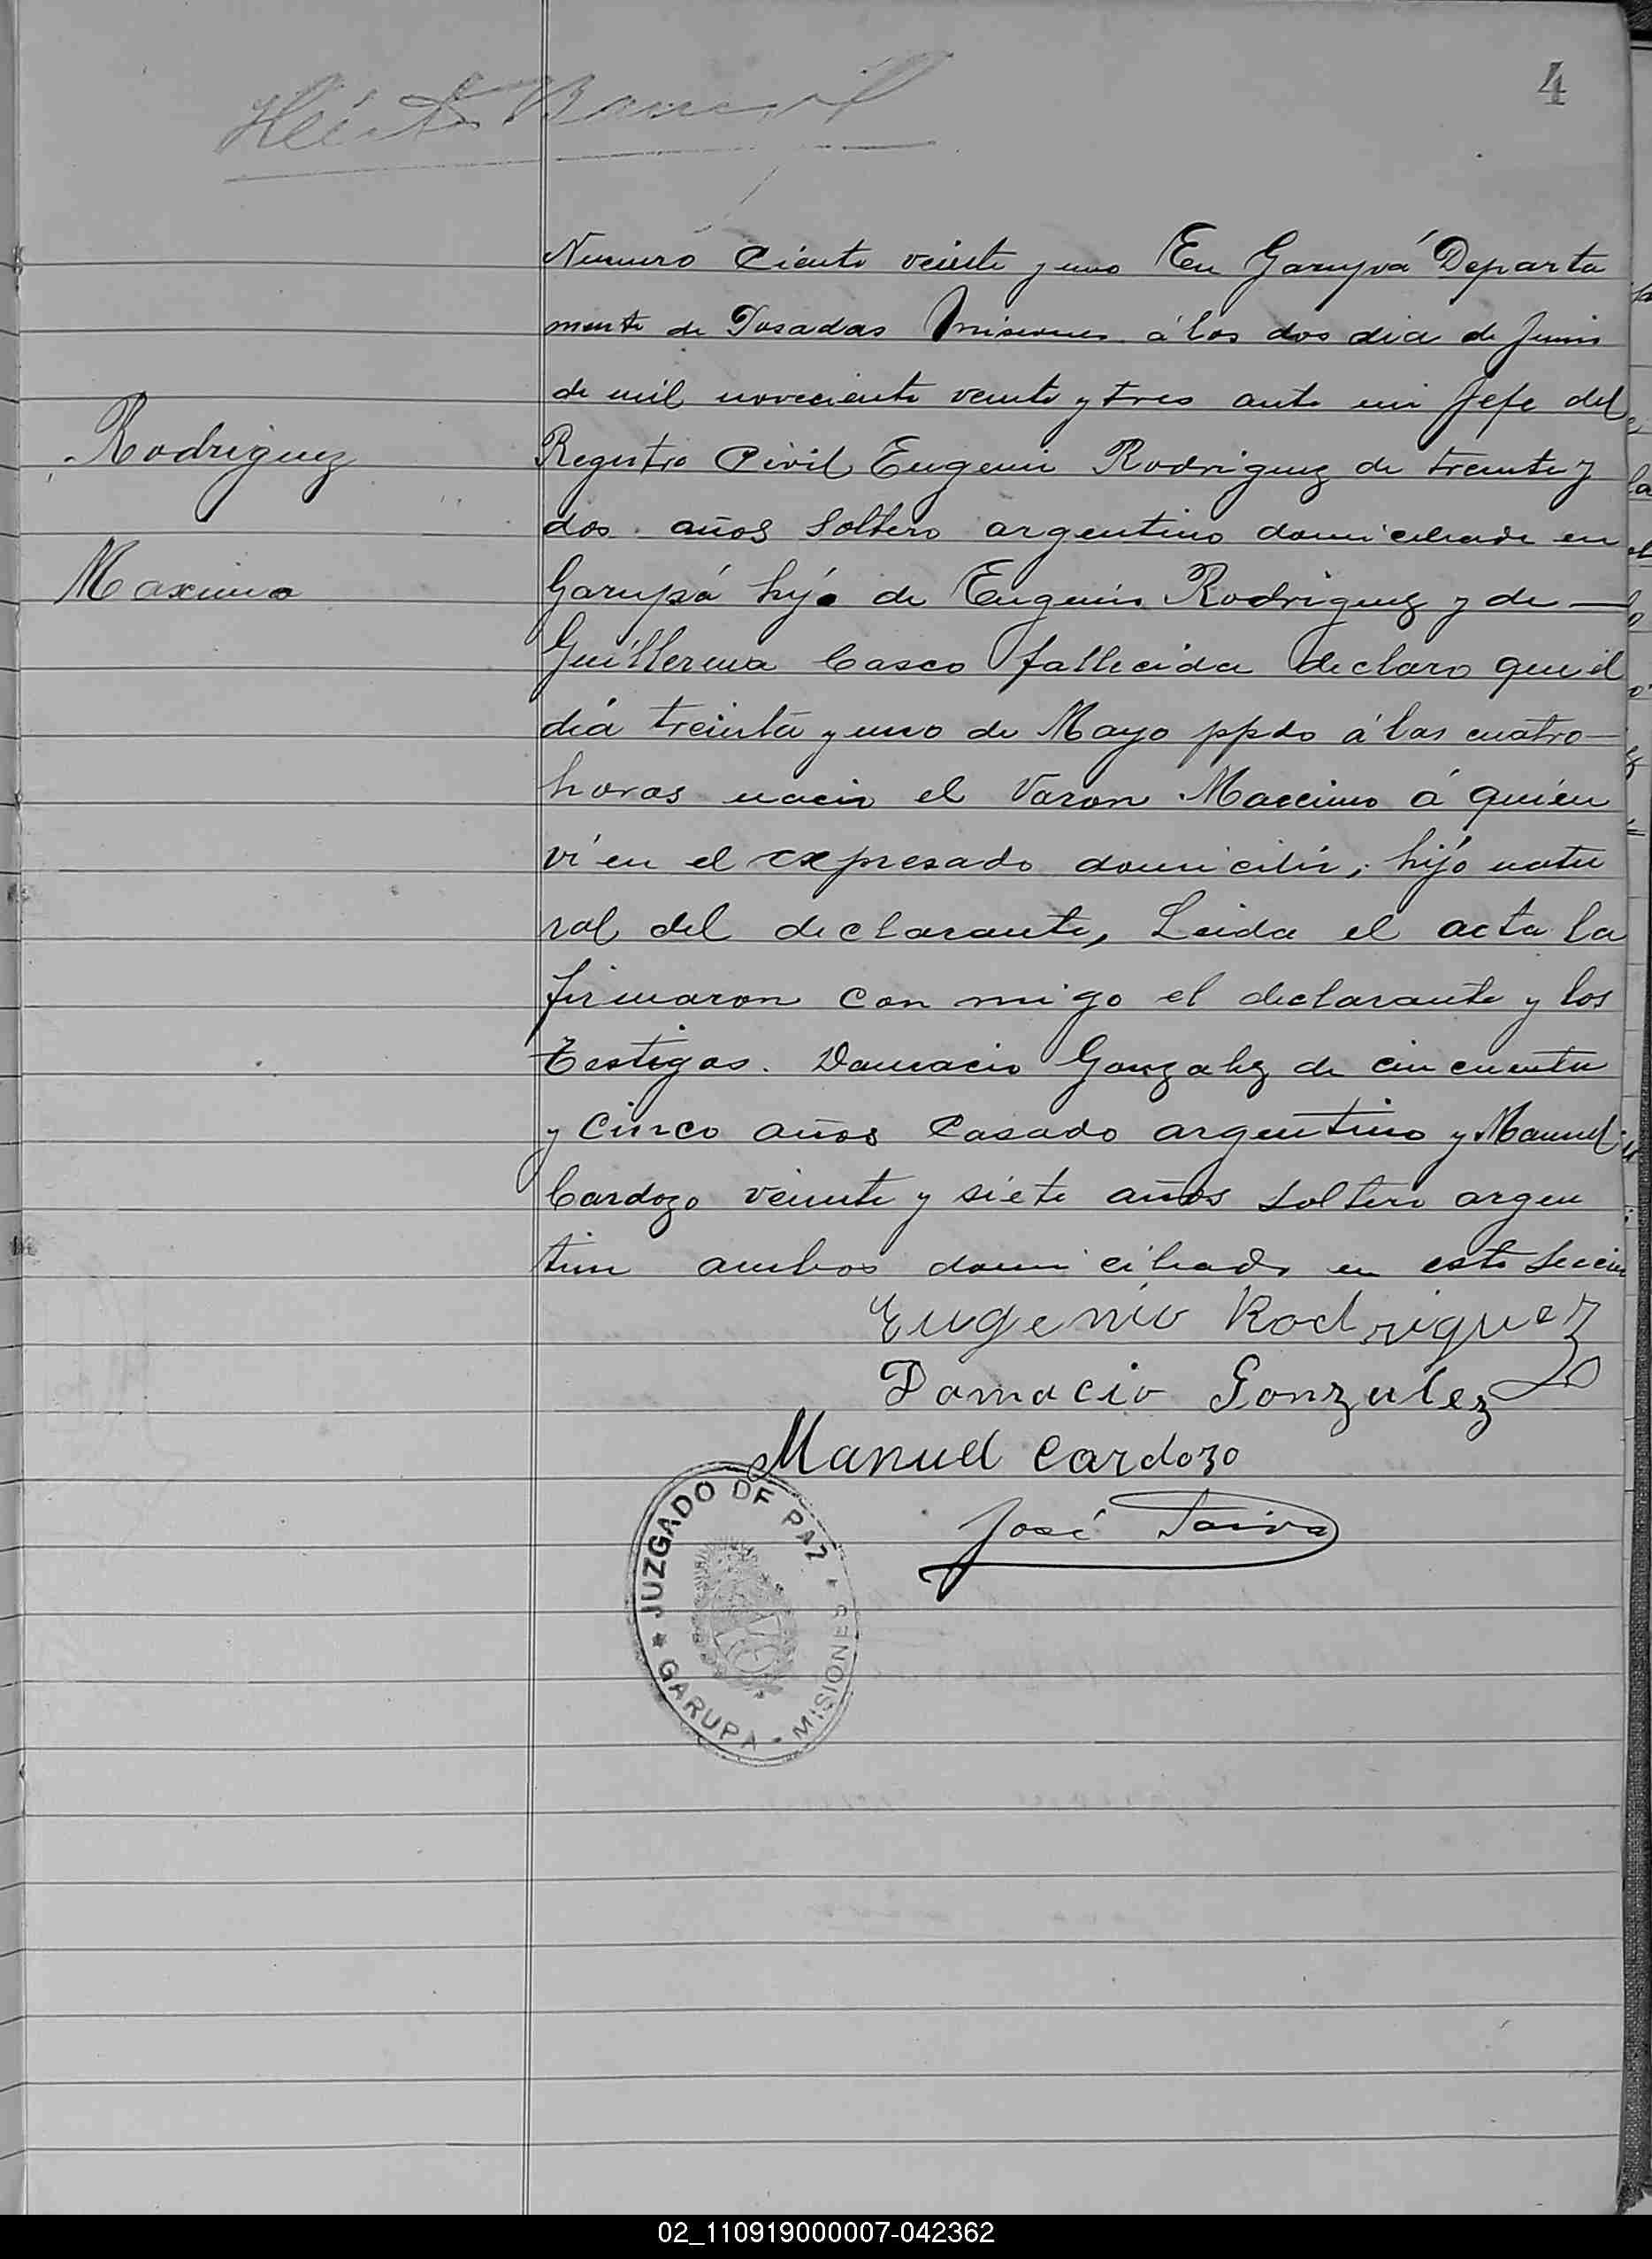 4
Numeró Ciento veinte y uno En Garupá Departa
mento de Posadas Misiones á los dos dia de Junio
de mil noveciento veinte y tres ante mi Jefe del
Rodriguez
Registro Civil Eugenio Rodriguez de treinta y
dos años Soltero argentino domiciliado en
Maximo
Garupá hijo de Eugenio Rodriguez y de —
Guillerma Casco fallecida declaro que el
dia treinta y uno de Mayo ppdo á las cuatro —
horas nacio el Varon Maccimo á quién
ví en el expresado domicilio; hijo natu
ral del declarante, Leida el acta la
firmaron con migo el declarante y los
testigos. Damacio Gonzalez de cincuenta
y Cinco años Casado argentino y Manuel
Cardozo veinte y siete años Soltero argen
tino ambos domiciliado en esta Seccion
Eugenio Rodriguez
Damacio Gonzalez
Manuel Cardozo
José
JUZGADO DE PAZ
GARUPA - MISIONES
02_110919000007-042362